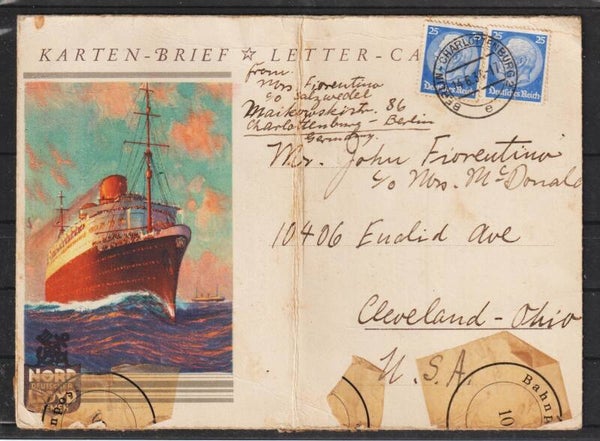 KARTEN-BRIEF ☆ LETTER-CA
25 25
Deutsches Reich Deutsches Reich
BERLIN-CHARLOTTENBURG
e
from
Mrs Fiorentino
c/o Salzwedel
Maikowskistr. 86
Charlottenburg - Berlin
Germany.
Mr. John Fiorentino
c/o Mrs. McDonald
10406 Euclid Ave
Cleveland - Ohio
U.S.A.
NORD
DEUTSCHER
Bahnh
10